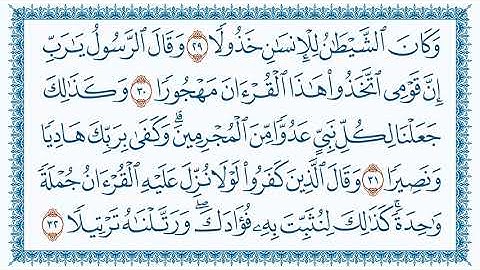 وَكَانَ ٱلشَّيْطَٰنُ لِلْإِنسَٰنِ خَذُولًا ٢٩ وَقَالَ ٱلرَّسُولُ يَٰرَبِّ
إِنَّ قَوْمِى ٱتَّخَذُوا۟ هَٰذَا ٱلْقُرْءَانَ مَهْجُورًا ٣٠ وَكَذَٰلِكَ
جَعَلْنَا لِكُلِّ نَبِىٍّ عَدُوًّا مِّنَ ٱلْمُجْرِمِينَ ۗ وَكَفَىٰ بِرَبِّكَ هَادِيًا
وَنَصِيرًا ٣١ وَقَالَ ٱلَّذِينَ كَفَرُوا۟ لَوْلَا نُزِّلَ عَلَيْهِ ٱلْقُرْءَانُ جُمْلَةً
وَٰحِدَةً ۚ كَذَٰلِكَ لِنُثَبِّتَ بِهِۦ فُؤَادَكَ ۖ وَرَتَّلْنَٰهُ تَرْتِيلًا ٣٢